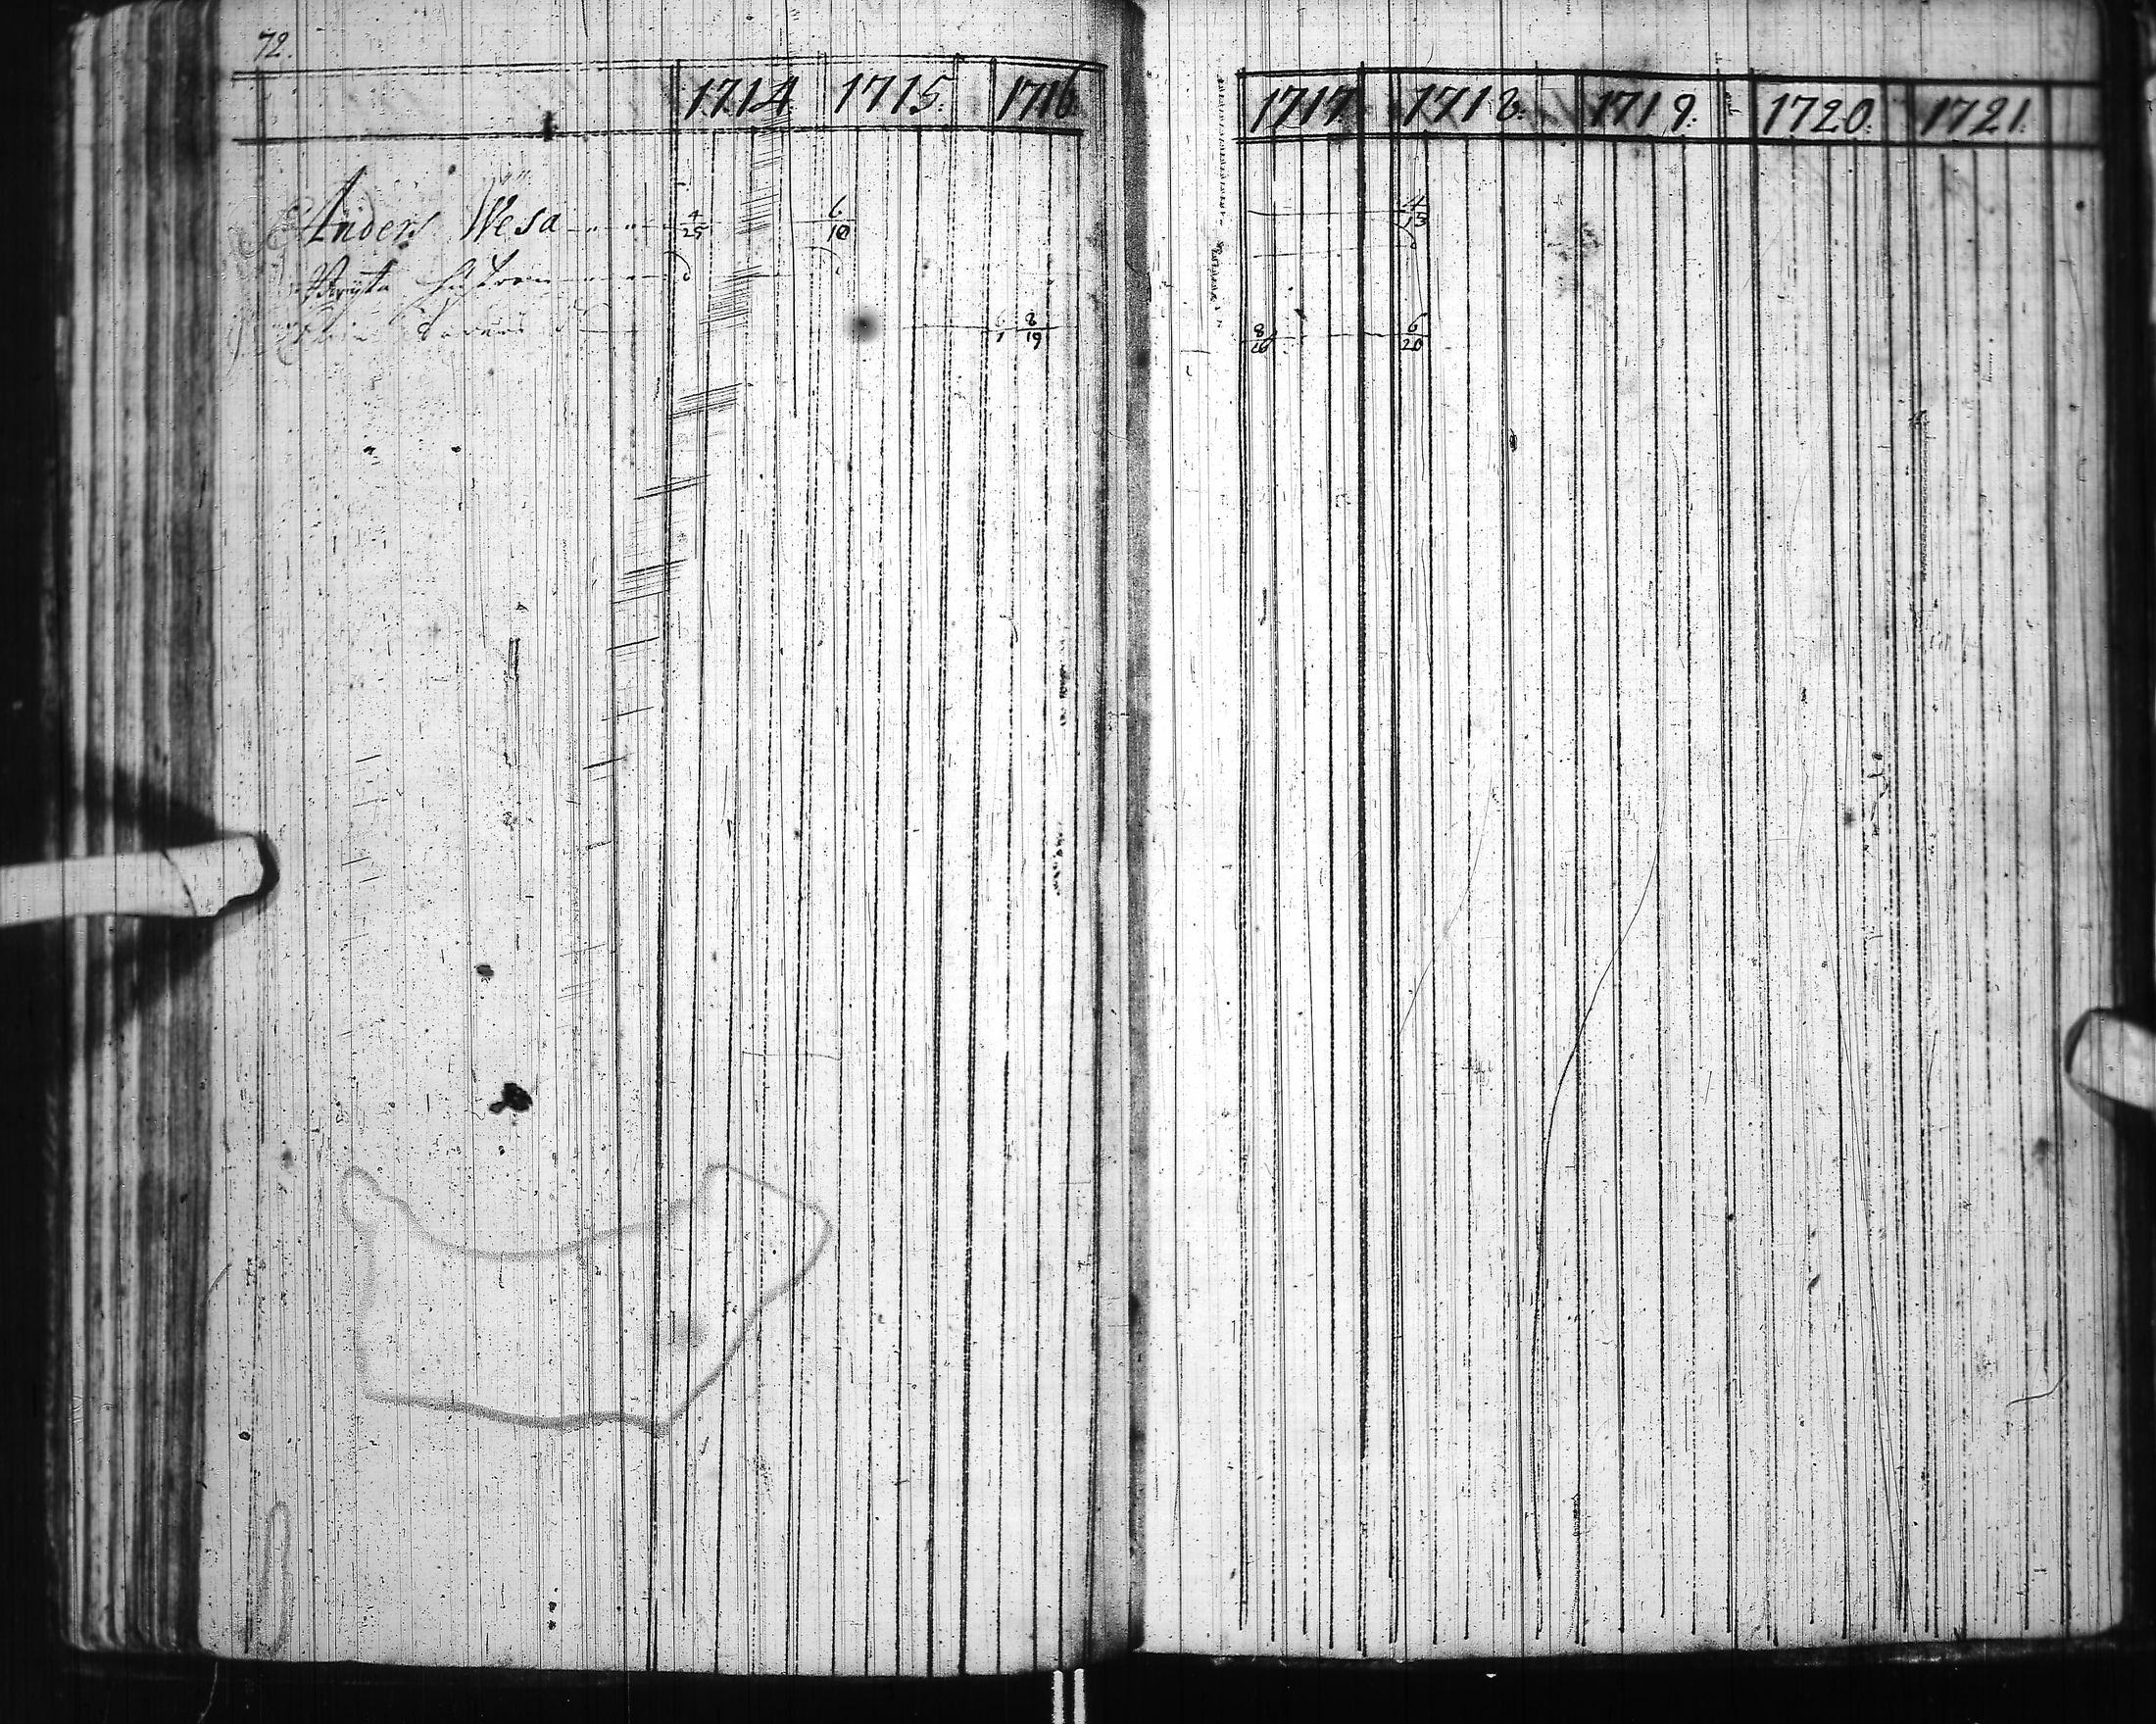 72.
1714 1715. 1716 1717 1718. 1719. 1720. 1721.
Anders Wesa 4/25 6/10 4/13
Brijta hustron
8/19 8/20 6/20